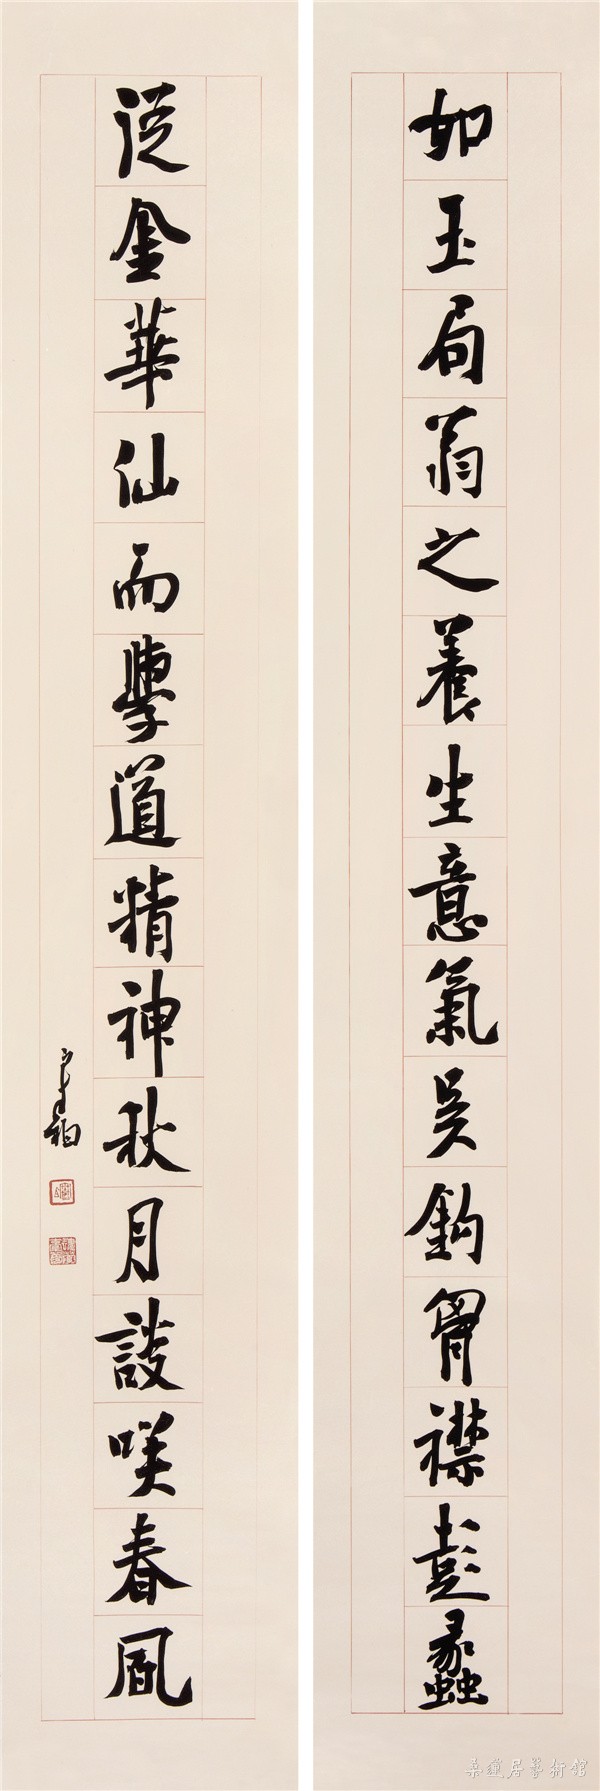 如玉局翁之養生意氣吴鈎胷襟彭蠡
從金華仙而學道精神秋月談咲春風
桑蓮居藝術館